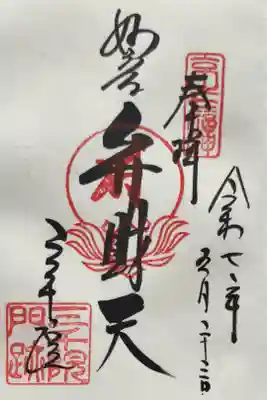 奉拝
令和七年
五月二十二日
妙音
弁財天
三千院
三千院
門跡